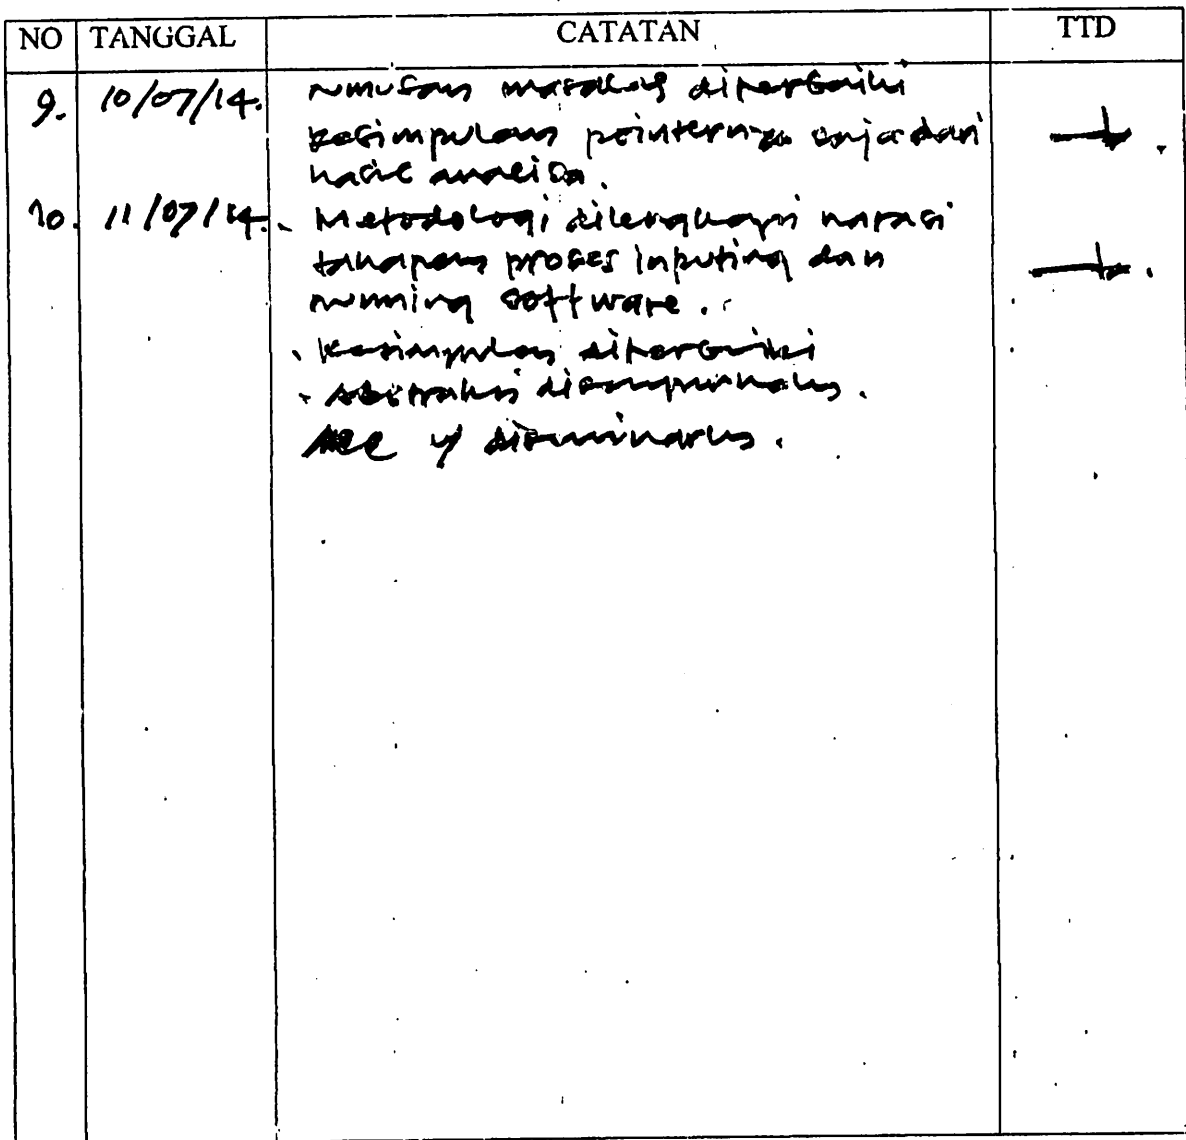 NO TANGGAL CATATAN TTD
9. 10/07/14. rumusan masalah diperbaiki
kesimpulan pointernya saja dari
hasil analisa.
10. 11/07/14. - Metodologi dilengkapi narasi
tahapan proses inputing dan
running software.
- kesimpulan diperbaiki
- Abstraksi disempurnakan.
Acc u/ diseminarkan.